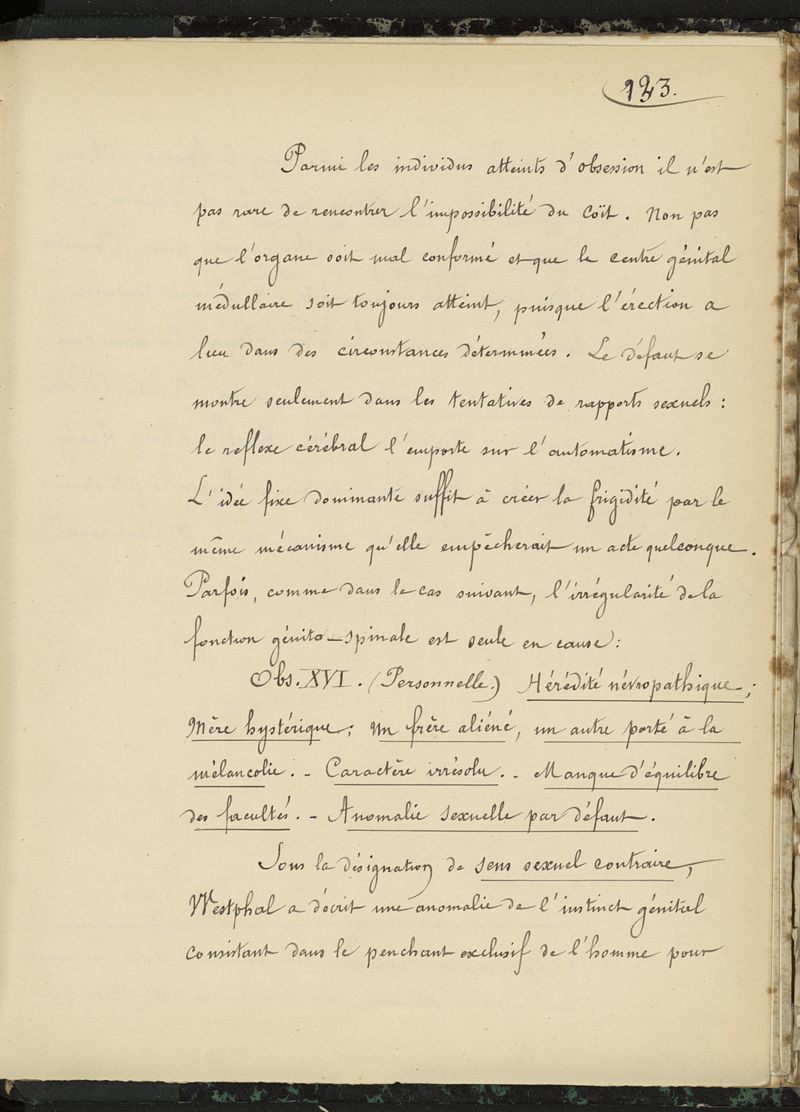 123.
Parmi les individus atteints d'obsession il n'est
pas rare de rencontrer l'impossibilité du Coït. Non pas
que l'organe soit mal conformé et que le centre génital
médullaire soit toujours atteint, puisque l'érection a
lieu dans des circonstances déterminées. Le défaut se
montre seulement dans les tentatives de rapports sexuels :
le reflexe cérébral l'emporte sur l'automatisme.
L'idée fixe dominante suffit à créer la frigidité par le
même mécanisme qu'elle empêcherait un acte quelconque.
Parfois, comme dans le cas suivant, l'irrégularité de la
fonction génito-spinale est seule en cause :
Obs. XVI. (Personnelle.) Hérédité névropathique ;
Mère hystérique ; Un frère aliéné, un autre porté à la
mélancolie. - Caractère irrésolu. - Manque d'équilibre
des facultés. - Anomalie sexuelle par défaut.
Sous la désignation de sens sexuel contraire,
Westphal a décrit une anomalie de l'instinct génital
consistant dans le penchant exclusif de l'homme pour